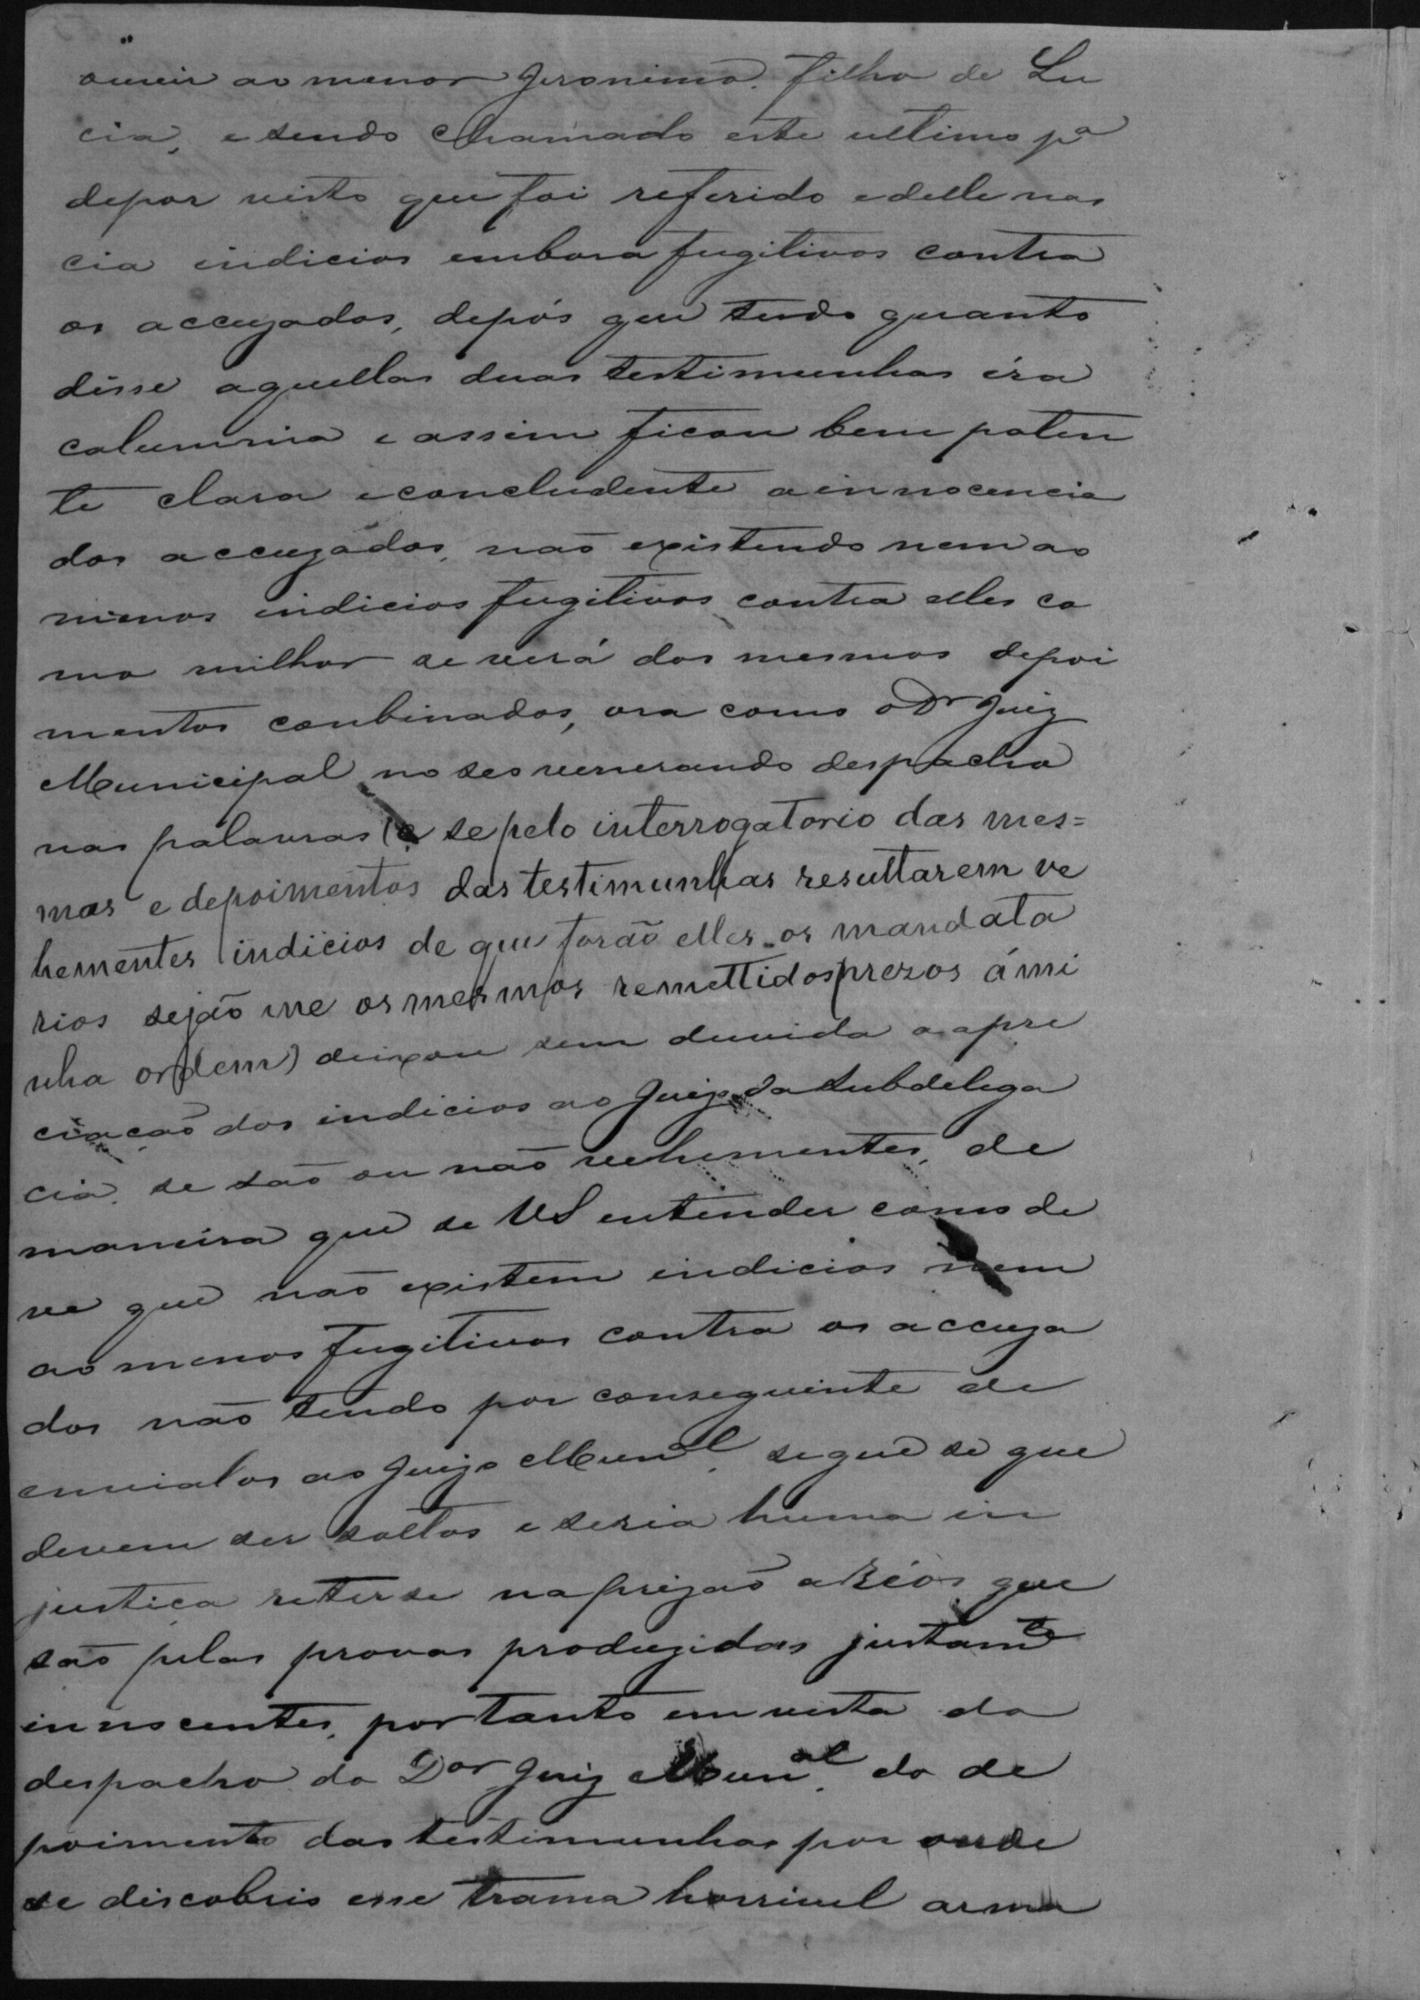 ouvir ao menor Jeronimo. filho de Lu
cia, e sendo chamado este ultimo pª
depor visto que foi referido e delle nas
cia indicios embora fugitivos contra
os accuzados, depôs que tudo quanto
disse aquellas duas testimunhas éra
calumnia e assim ficou bem paten
te clara e concludente a innocencia
dos accuzados, não existindo nem ao
menos indicios fugitivos contra elles co
mo milhor se verá dos mesmos depoi
mentos combinados, ora como o Dr Juiz
Municipal no seo venerando despacho
nas palavras (e se pelo interrogatorio das mes=
mas e depoimentos das testimunhas resultarem ve
hementes indicios de que forão elles os mandata
rios sejão me os mesmos remettidos prezos á mi
nha ordem) deixou sem duvida a apre
ciação dos indicios ao Juizo da Subdelega
cia, se são ou não vehementes, de
maneira que se VS entender como de
ve que não existem indicios nem
ao menos fugitivos contra os accuza
dos não tendo por conseguinte de
envialos ao Juizo Munal. segue se que
devem ser soltos e seria huma in
justiça reterse na prizão a Réos que
são pelas provas produzidas justamte
innocentes, por tanto em vista do
despacho do Dor Juiz Munal. do de
poimento das testimunhas por onde
se discobrio esse trama horrivel arma